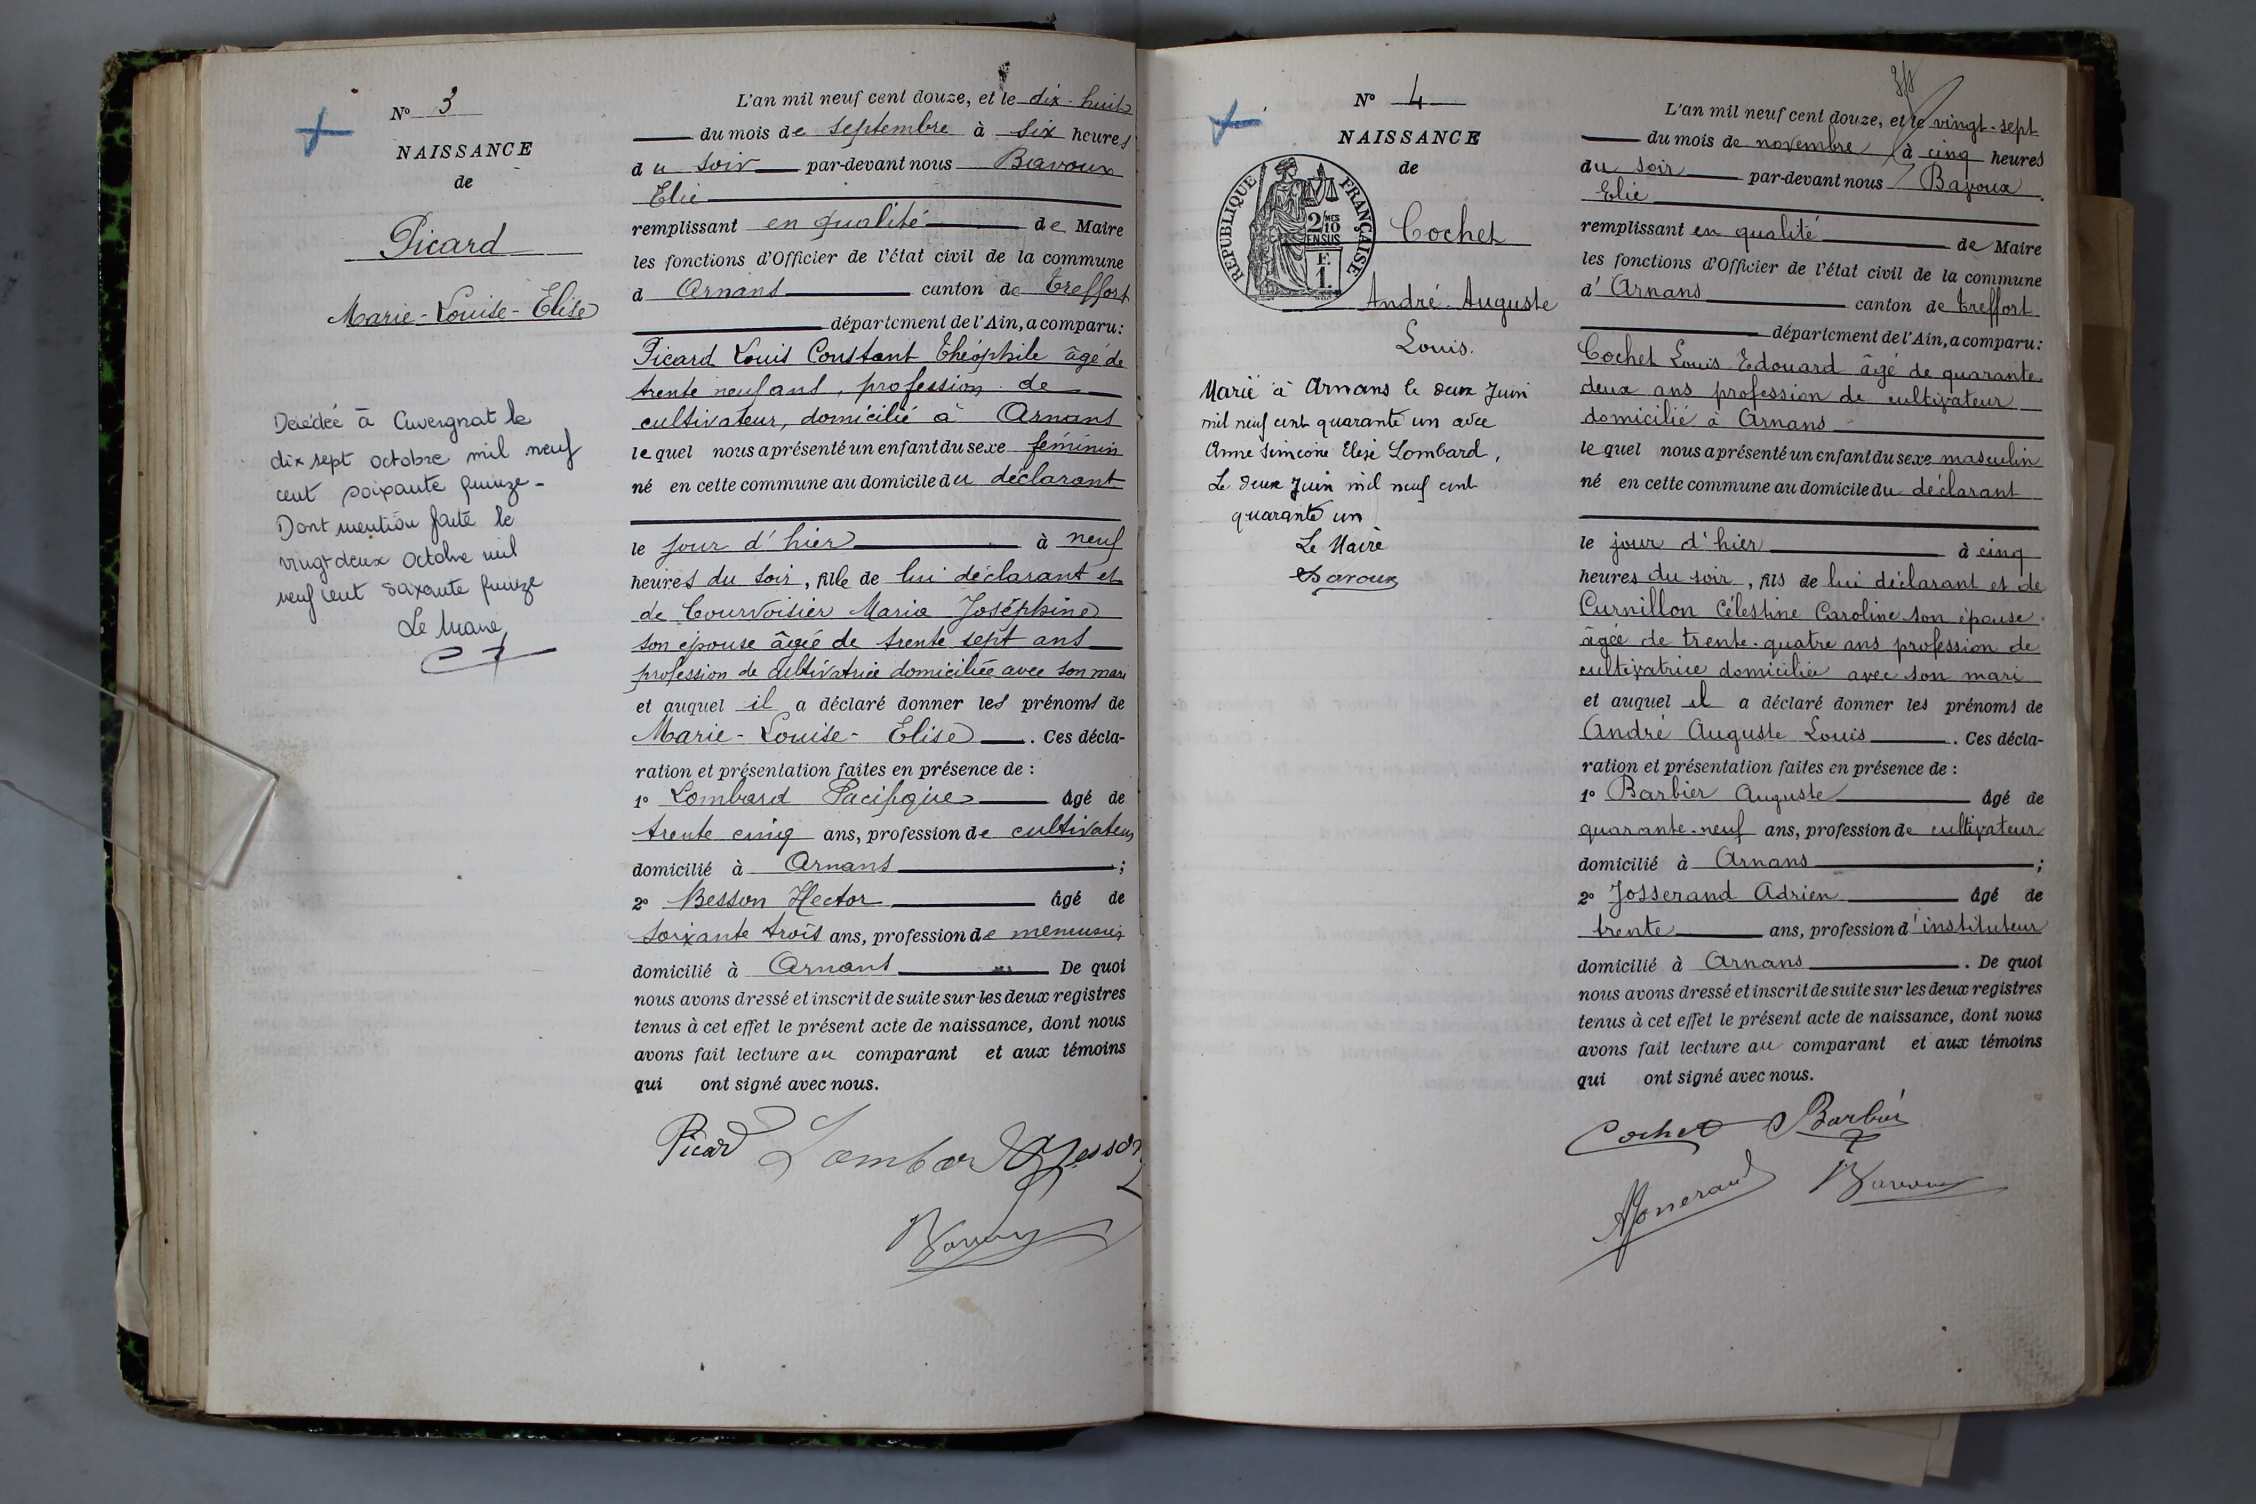 N° 3
NAISSANCE
de
Picard
Marie-Louise-Elise
Décédée à Cuvergnat le
dix sept octobre mil neuf
cent soixante quinze -
Dont mention faite le
vingt deux octobre mil
neuf cent soixante quinze
Le Maire
L'an mil neuf cent douze, et le dix-huit
du mois de septembre à six heures
du soir par-devant nous Bavoux
Elie
remplissant en qualité de Maire
les fonctions d'Officier de l'état civil de la commune
d Arnans canton de Treffort
département de l'Ain, a comparu:
Picard Louis Constant Théophile âgé de
trente neuf ans, profession de
cultivateur, domicilié à Arnans
lequel nous a présenté un enfant du sexe féminin
né en cette commune au domicile du déclarant
le jour d'hier à neuf
heures du soir, fille de lui déclarant et
de Courvoisier Maria Joséphine
son épouse âgée de trente sept ans
profession de cultivatrice domiciliée avec son mari
et auquel il a déclaré donner les prénoms de
Marie-Louise-Elise. Ces décla-
ration et présentation faites en présence de :
1° Lombard Pacifique âgé de
trente cinq ans, profession de cultivateur
domicilié à Arnans ;
2° Besson Hector âgé de
soixante trois ans, profession de menuisier
domicilié à Arnans De quoi
nous avons dressé et inscrit de suite sur les deux registres
tenus à cet effet le présent acte de naissance, dont nous
avons fait lecture au comparant et aux témoins
qui ont signé avec nous.
Picard Lombard Besson
Bavoux
N° 4
NAISSANCE
de
RÉPUBLIQUE FRANÇAISE
2 MES
10
EN SUS
E
1.
Cochet
André-Auguste
Louis.
Marié à Arnans le deux Juin
mil neuf cent quarante un avec
Anne Siméone Elise Lombard,
Le deux Juin mil neuf cent
quarante un
Le Maire
Bavoux
L'an mil neuf cent douze, et le vingt-sept
du mois de novembre à cinq heures
du soir par-devant nous Bavoux
Elie
remplissant en qualité de Maire
les fonctions d'Officier de l'état civil de la commune
d'Arnans canton de Treffort
département de l'Ain, a comparu:
Cochet Louis Edouard âgé de quarante
deux ans profession de cultivateur
domicilié à Arnans
lequel nous a présenté un enfant du sexe masculin
né en cette commune au domicile du déclarant
le jour d'hier à cinq
heures du soir, fils de lui déclarant et de
Curnillon Célestine Caroline son épouse
âgée de trente-quatre ans profession de
cultivatrice domiciliée avec son mari
et auquel il a déclaré donner les prénoms de
André Auguste Louis. Ces décla-
ration et présentation faites en présence de :
1° Barbier Auguste âgé de
quarante-neuf ans, profession de cultivateur
domicilié à Arnans ;
2° Josserand Adrien âgé de
trente ans, profession d'instituteur
domicilié à Arnans. De quoi
nous avons dressé et inscrit de suite sur les deux registres
tenus à cet effet le présent acte de naissance, dont nous
avons fait lecture au comparant et aux témoins
qui ont signé avec nous.
Cochet Barbier
AJosserand Bavoux